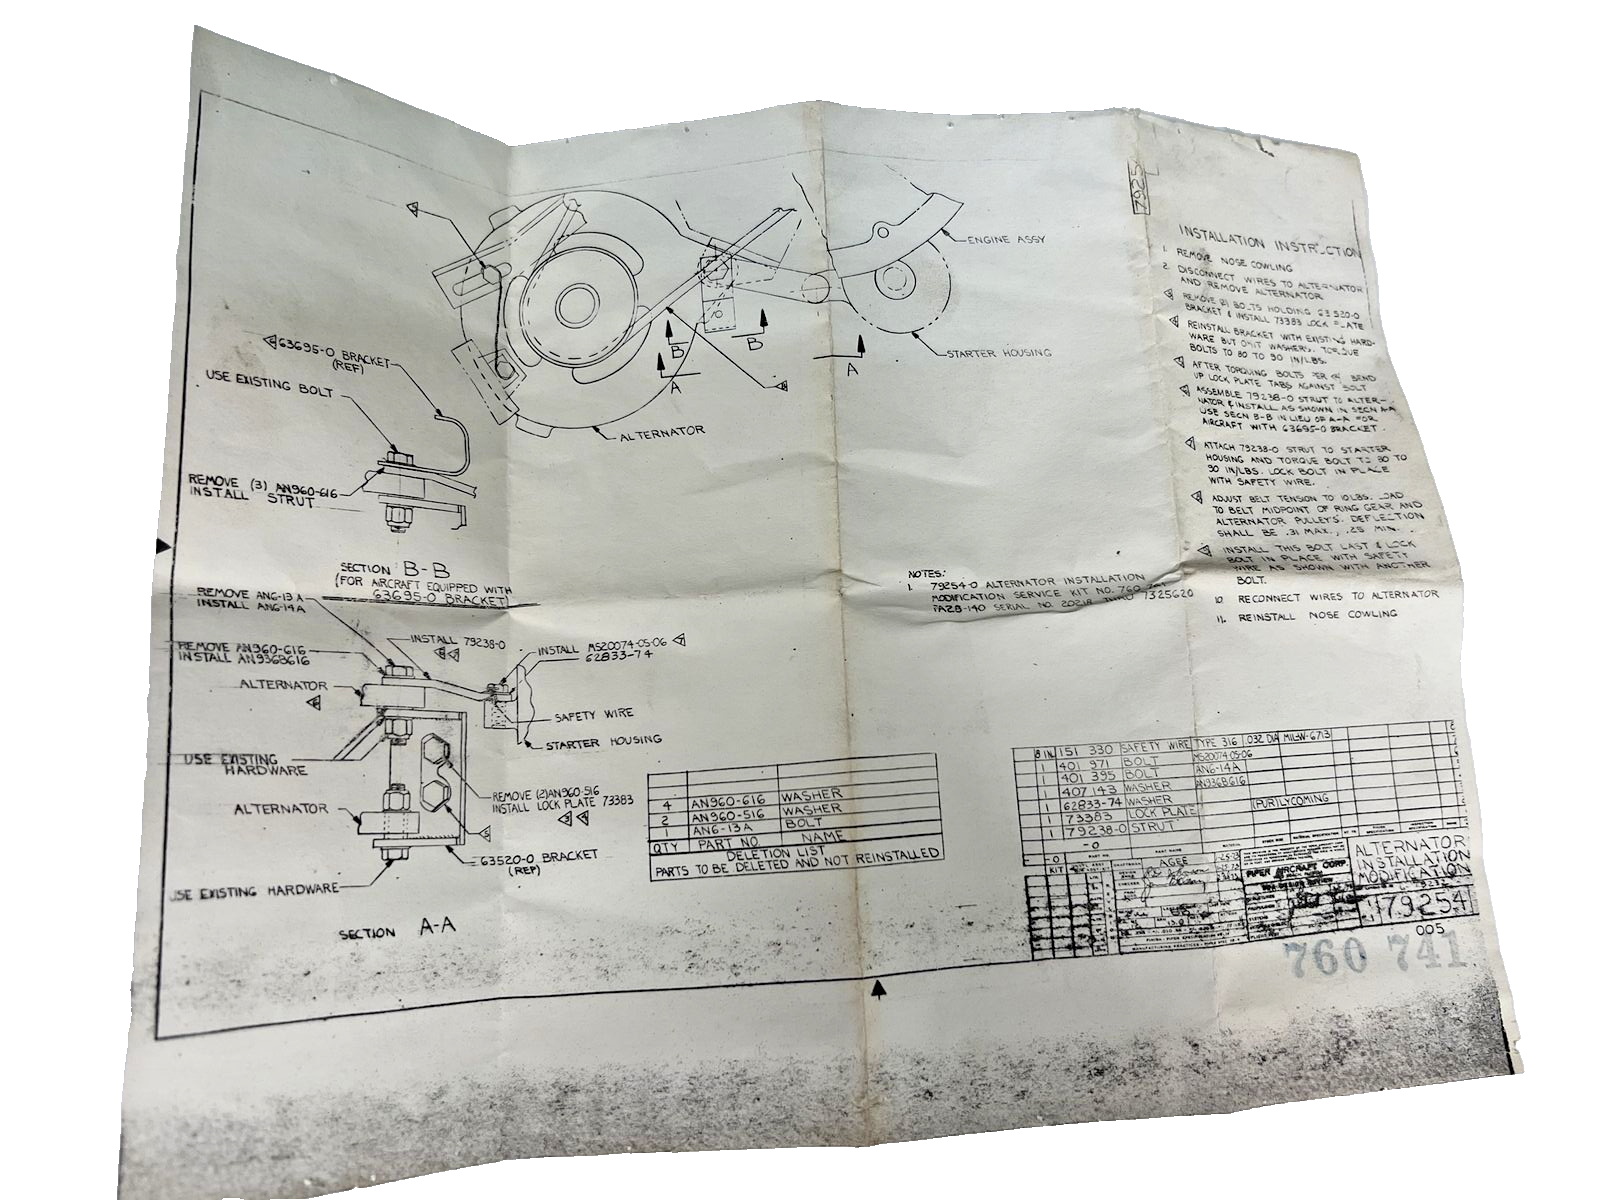 7925
INSTALLATION INSTRUCTION
1. REMOVE NOSE COWLING
2. DISCONNECT WIRES TO ALTERNATOR
AND REMOVE ALTERNATOR
REMOVE (2) BOLTS HOLDING 63520-0
BRACKET & INSTALL 73383 LOCK PLATE
REINSTALL BRACKET WITH EXISTING HARD-
WARE BUT OMIT WASHERS. TORQUE
BOLTS TO 80 TO 90 IN/LBS.
AFTER TORQUING BOLTS PER 4 BEND
UP LOCK PLATE TABS AGAINST BOLT
ASSEMBLE 79238-0 STRUT TO ALTER-
NATOR & INSTALL AS SHOWN IN SECN A-A
USE SECN B-B IN LIEU OF A-A FOR
AIRCRAFT WITH 63695-0 BRACKET.
ATTACH 79238-0 STRUT TO STARTER
HOUSING AND TORQUE BOLT TO 80 TO
90 IN/LBS. LOCK BOLT IN PLACE
WITH SAFETY WIRE.
ADJUST BELT TENSION TO 10 LBS. LOAD
TO BELT MIDPOINT OF RING GEAR AND
ALTERNATOR PULLEYS. DEFLECTION
SHALL BE .31 MAX., .25 MIN.
INSTALL THIS BOLT LAST & LOCK
BOLT IN PLACE WITH SAFETY
WIRE AS SHOWN WITH ANOTHER
BOLT.
10. RECONNECT WIRES TO ALTERNATOR
11. REINSTALL NOSE COWLING
ENGINE ASSY
STARTER HOUSING
B B
A A
ALTERNATOR
63695-0 BRACKET
(REF)
USE EXISTING BOLT
REMOVE (3) AN960-616
INSTALL STRUT
SECTION B-B
(FOR AIRCRAFT EQUIPPED WITH
63695-0 BRACKET)
NOTES:
1. 79254-0 ALTERNATOR INSTALLATION
MODIFICATION SERVICE KIT NO. 760
PA28-140 SERIAL NO. 20218 THRU 7325620
REMOVE AN6-13A
INSTALL AN6-14A
INSTALL 79238-0
INSTALL MS20074-05-06
62833-74
REMOVE AN960-616
INSTALL AN936B616
ALTERNATOR
SAFETY WIRE
STARTER HOUSING
USE EXISTING
HARDWARE
REMOVE (2) AN960-516
INSTALL LOCK PLATE 73383
ALTERNATOR
63520-0 BRACKET
(REF)
USE EXISTING HARDWARE
SECTION A-A
4 AN960-616 WASHER
2 AN960-516 WASHER
1 AN6-13A BOLT
QTY PART NO. NAME
DELETION LIST
PARTS TO BE DELETED AND NOT REINSTALLED
8 IN 151 330 SAFETY WIRE TYPE 316 .032 DIA MIL-W-6713
1 401 971 BOLT MS20074-05-06
1 401 395 BOLT AN6-14A
1 407 143 WASHER AN936B616
1 62833-74 WASHER
1 73383 LOCK PLATE (PUR)LYCOMING
1 79238-0 STRUT
-0
-0 PART NO. PART NAME MATERIAL
KIT
AGEE
PIPER AIRCRAFT CORP.
ALTERNATOR
INSTALLATION
MODIFICATION
79254
005
760 741